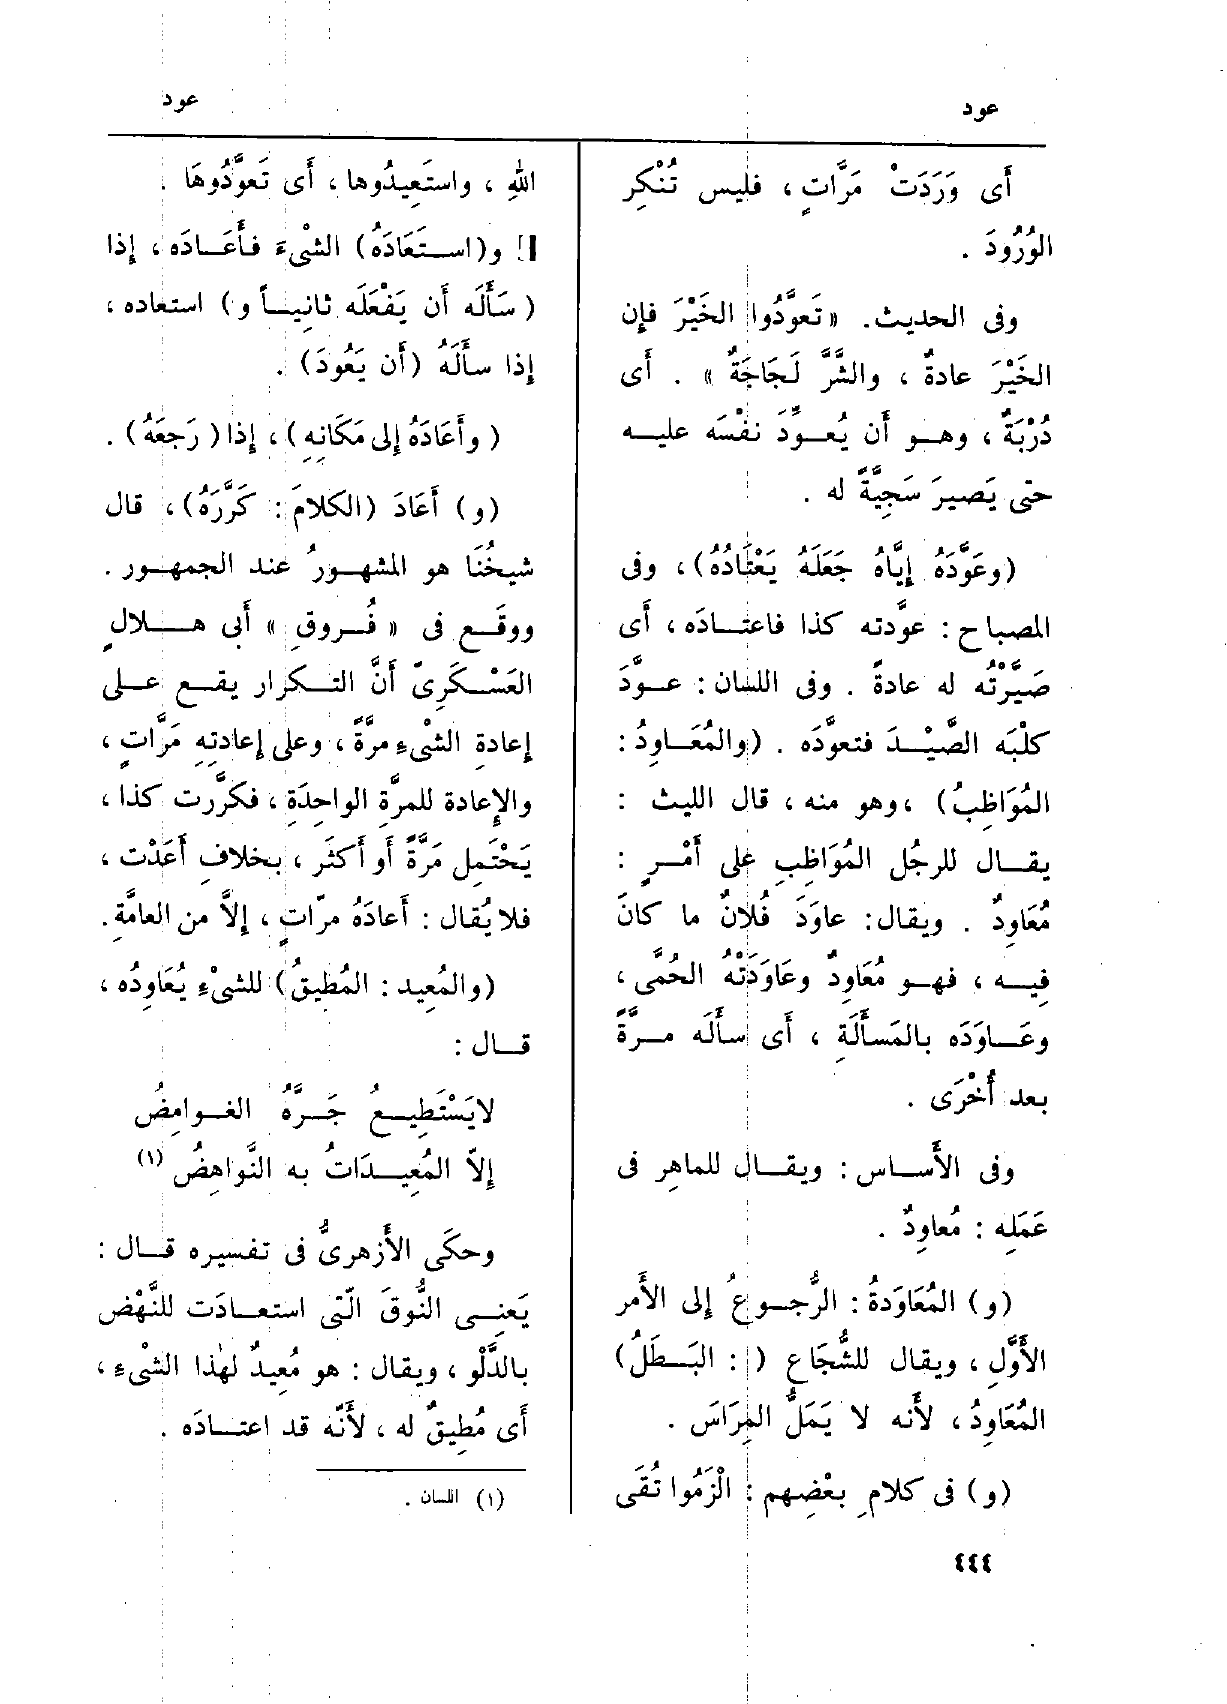 عود
عود
أَى وَرَدَتْ مَرَّاتٍ ، فليس تُنْكِر
الوُرُودَ .
وفى الحديث. « تَعوَّدُوا الخَيْرَ فإِن
الخَيْرَ عادةٌ ، والشَّرَّ لَجَاجَةٌ » . أَى
دُرْبَةٌ ، وهـو أَن يُعـوِّدَ نفْسَه عليـه
حتى يَصيرَ سَجِيَّةً له .
(وعَوَّدَهُ إِيَّاهُ جَعَلَهُ يَعْتَادُهُ) ، وفى
المصباح : عوَّدته كذا فاعتـادَه ، أَى
صَيَّرْتُه له عادةً . وفى اللسان : عـوَّدَ
كلْبَه الصَّيْـدَ فتعوَّدَه . (والمُعَـاوِدُ :
المُوَاظِبُ) ، وهو منه ، قال الليث :
يقـال للرجُل المُوَاظِبِ على أَمْـرٍ :
مُعَاوِدٌ . ويقال : عاوَدَ فُلانٌ ما كانَ
فِيـه ، فهـو مُعَاوِدٌ وعَاوَدَتْهُ الحُمَّى ،
وعَـاوَدَه بالمَسأَلَةِ ، أَى سأَلَه مـرَّةً
بعد أُخْرَى .
وفى الأَسـاس : ويقـال للماهِر فى
عَمَلِه : مُعاوِدٌ .
(و) المُعَاوَدةُ : الرُّجـوعُ إِلى الأَمر
الأَوَّلِ ، ويقال للشُّجَاع ( : البَـطَلُ)
المُعَاوِدُ ، لأَنه لا يَمَلُّ المِرَاسَ .
(و) فى كلامِ بعْضِهم : الْزَمُوا تُقَى
اللهِ ، واستَعِيدُوها ، أَى تَعوَّدُوهَا .
و(اسـتَعَادَهُ) الشىْءَ فأَعَـادَه ، إِذا
(سَأَلَه أَن يَفْعَلَه ثانيـاً و) استعاده ،
إِذا سأَلَهُ (أَن يَعُودَ) .
(وأَعَادَهُ إِلى مَكَانِهِ) ، إِذا (رَجعَهُ) .
(و) أَعَادَ (الكلامَ : كَرَّرَهُ) ، قال
شيخُنَا هو المشهـورُ عند الجمهـور .
ووقَـع فى « فُـروقِ » أَبى هـلالٍ
العَسْكَرِىّ أَنَّ التـكرار يقـع عـلى
إِعادةِ الشىْءِ مرَّةً ، وعلى إِعادتِهِ مَرَّاتٍ ،
والإِعادة للمرَّةِ الواحِدَةِ ، فكرَّرت كذا ،
يَحْتَمِل مَرَّةً أَو أَكثَر ، بخلافِ أَعَدْت ،
فلا يُقال : أَعادَهُ مرّاتٍ ، إِلاَّ من العامَّةِ .
(والمُعِيد : المُطيقُ) للشىْءِ يُعَاوِدُه ،
قـال :
لايَسْتَطِيـعُ جَـرَّهُ الغـوامِضُ
إِلاّ المُعِيـدَاتُ به النَّواهِضُ (١)
وحكَى الأَزهرىُّ فى تفسيره قـال :
يَعنِـى النُّوقَ الّتى استعـادَت للنَّهْض
بالدَّلْو ، ويقال : هو مُعِيدٌ لهٰذا الشىْءِ ،
أَى مُطِيقٌ له ، لأَنّه قد اعتـادَه .
(١) اللسان .
٤٤٤